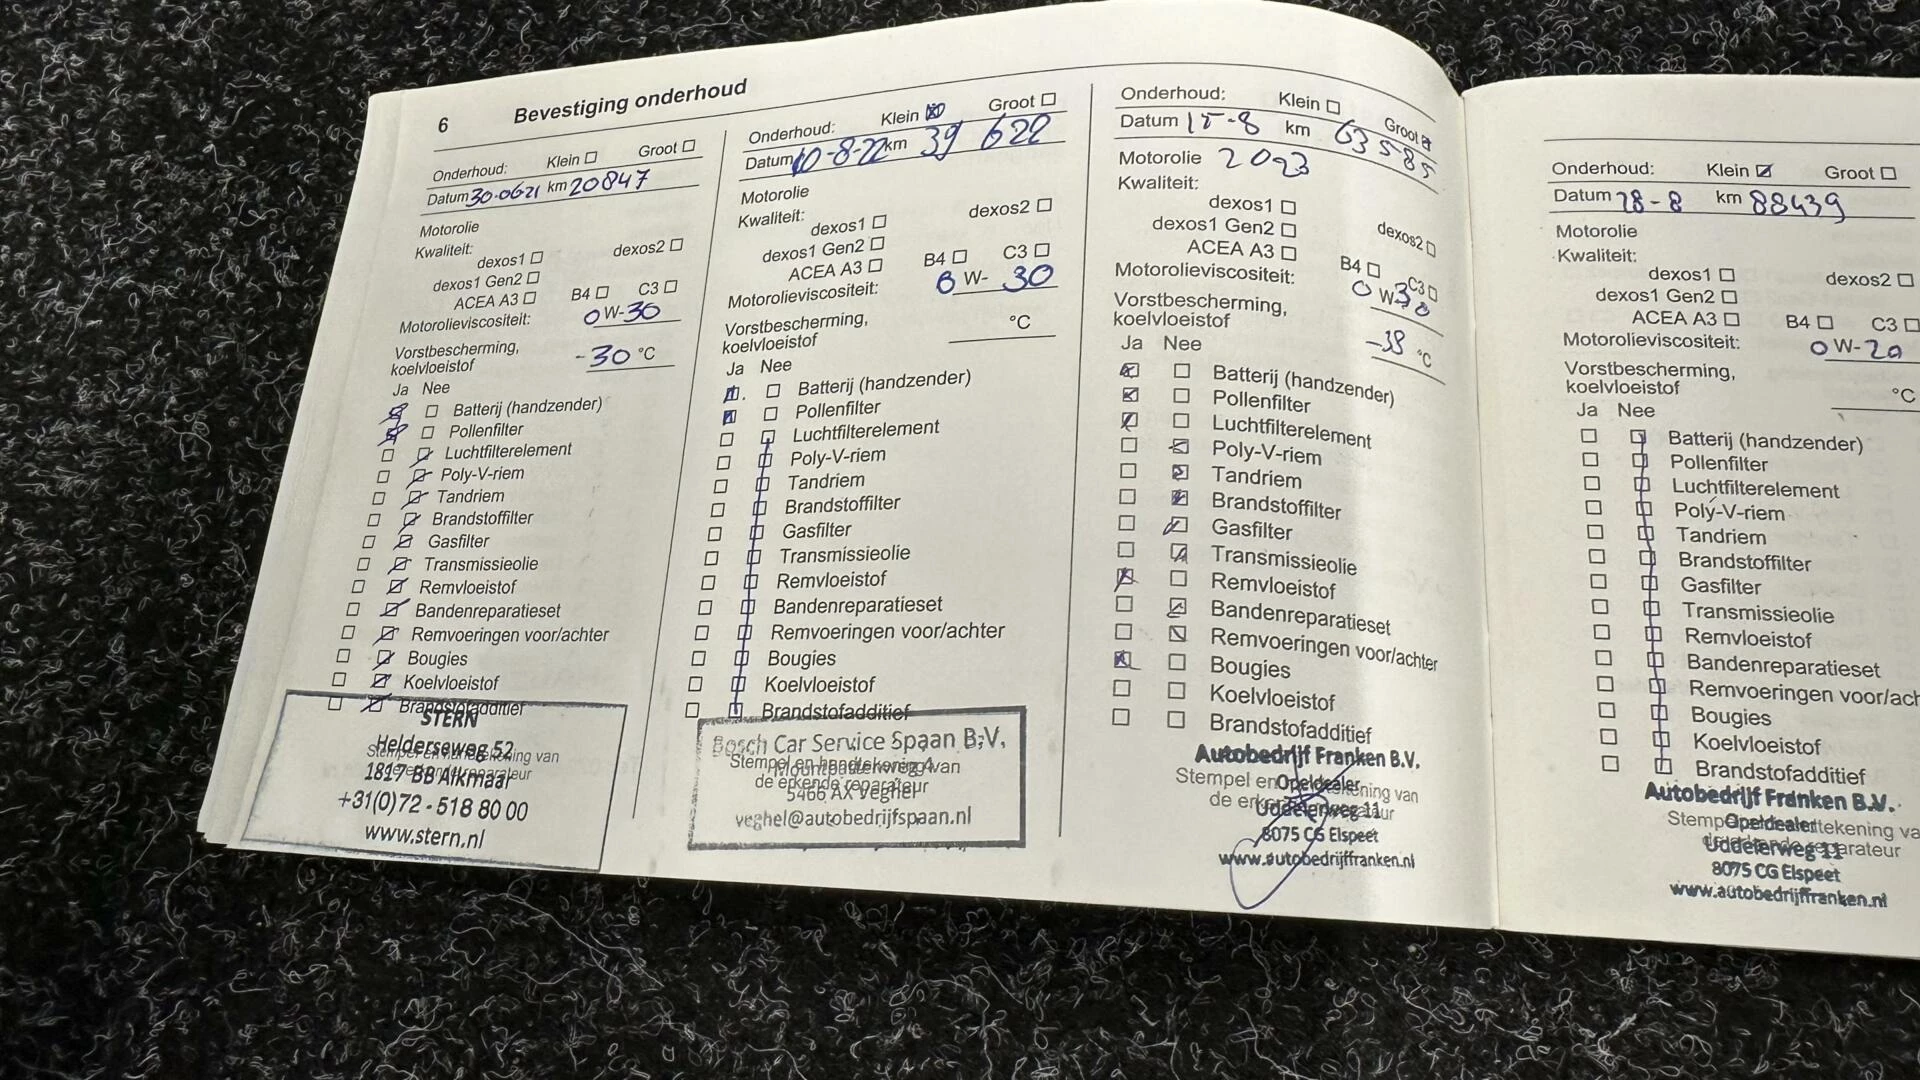 6 Bevestiging onderhoud
Onderhoud: Klein Groot
Datum 30-06 21 km 20847
Motorolie
Kwaliteit:
dexos1 dexos2
dexos1 Gen2
ACEA A3 B4 C3
Motorolieviscositeit: 0 W-30
Vorstbescherming,
koelvloeistof -30 °C
Ja Nee
Batterij (handzender)
Pollenfilter
Luchtfilterelement
Poly-V-riem
Tandriem
Brandstoffilter
Gasfilter
Transmissieolie
Remvloeistof
Bandenreparatieset
Remvoeringen voor/achter
Bougies
Koelvloeistof
Brandstofadditief
Stempel en handtekening van
de erkende reparateur
STERN
Helderseweg 52
1817 BB Alkmaar
+31(0)72 - 518 80 00
www.stern.nl
Onderhoud: Klein Groot
Datum 10-8-22 km 39 622
Motorolie
Kwaliteit:
dexos1 dexos2
dexos1 Gen2
ACEA A3 B4 C3
Motorolieviscositeit: 0 W- 30
Vorstbescherming,
koelvloeistof °C
Ja Nee
Batterij (handzender)
Pollenfilter
Luchtfilterelement
Poly-V-riem
Tandriem
Brandstoffilter
Gasfilter
Transmissieolie
Remvloeistof
Bandenreparatieset
Remvoeringen voor/achter
Bougies
Koelvloeistof
Brandstofadditief
Stempel en handtekening van
de erkende reparateur
Bosch Car Service Spaan B.V.
5466 AX Veghel
veghel@autobedrijfspaan.nl
Onderhoud: Klein Groot
Datum 15-8 km 63585
Motorolie 2023
Kwaliteit:
dexos1
dexos1 Gen2 dexos2
ACEA A3 B4 C3
Motorolieviscositeit: 0 W 30
Vorstbescherming,
koelvloeistof -38 °C
Ja Nee
Batterij (handzender)
Pollenfilter
Luchtfilterelement
Poly-V-riem
Tandriem
Brandstoffilter
Gasfilter
Transmissieolie
Remvloeistof
Bandenreparatieset
Remvoeringen voor/achter
Bougies
Koelvloeistof
Brandstofadditief
Stempel en handtekening van
de erkende reparateur
Autobedrijf Franken B.V.
Opeldealer
Uddelerweg 11
8075 CG Elspeet
www.autobedrijffranken.nl
Onderhoud: Klein Groot
Datum 28-8 km 88439
Motorolie
Kwaliteit:
dexos1 dexos2
dexos1 Gen2
ACEA A3 B4 C3
Motorolieviscositeit: 0 W-20
Vorstbescherming,
koelvloeistof °C
Ja Nee
Batterij (handzender)
Pollenfilter
Luchtfilterelement
Poly-V-riem
Tandriem
Brandstoffilter
Gasfilter
Transmissieolie
Remvloeistof
Bandenreparatieset
Remvoeringen voor/ach
Bougies
Koelvloeistof
Brandstofadditief
Stempel en handtekening va
de erkende reparateur
Autobedrijf Franken B.V.
Opeldealer
Uddelerweg 11
8075 CG Elspeet
www.autobedrijffranken.nl